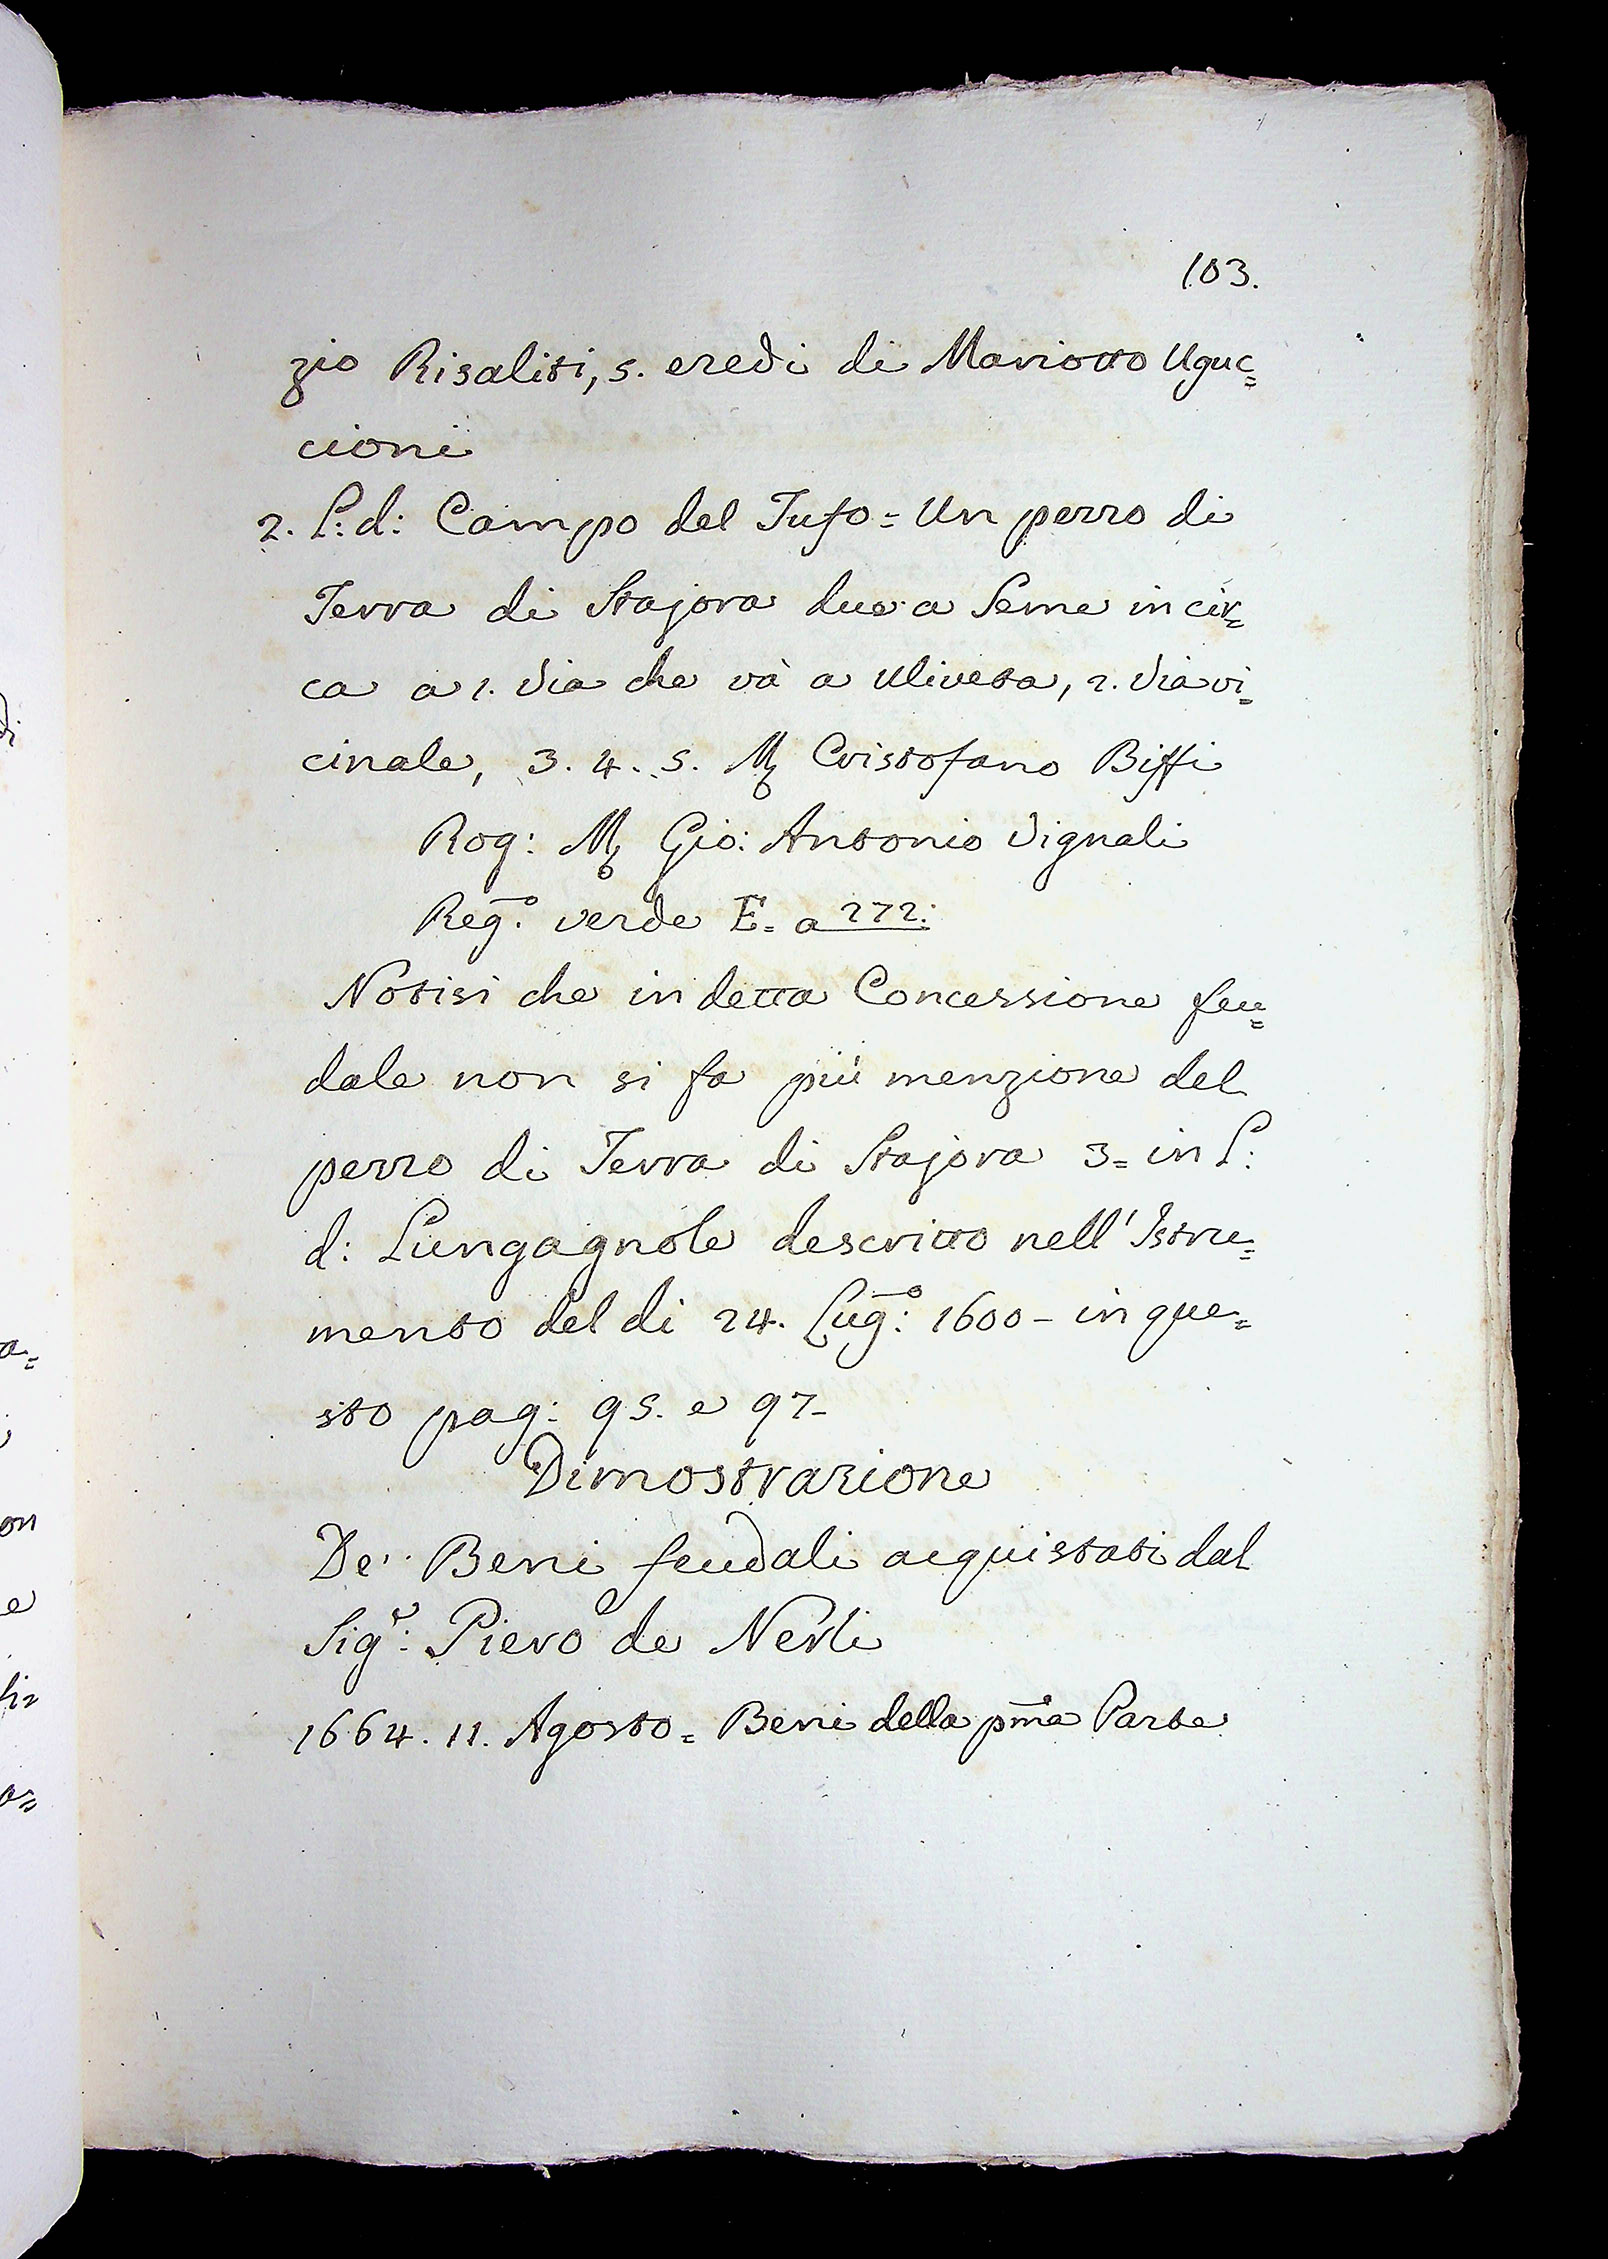 103.
zio Risaliti, 5. eredi di Mariotto Uguc=
cioni
2. L: d: Campo del Tufo = Un pezzo di
Terra di Stajora due a Seme in cir=
ca a 1. Via che và a Uliveta, 2. Via vi=
cinale, 3. 4. 5. Cristofano Biffi
Rog: Gio: Antonio Vignali
Reg.º verde E. a 272:
Notisi che in detta Concessione feu=
dale non si fa più menzione del
pezzo di Terra di Stajora 3= in L:
d: Lungagnole descritto nell' Istru=
mento del di 24. Lug.º: 1600 - in que=
sto pag: 95. e 97-
Dimostrazione
De'. Beni feudali acquistati dal
Sig.r: Piero de Nerli
1664. 11. Agosto = Beni della pma Parte